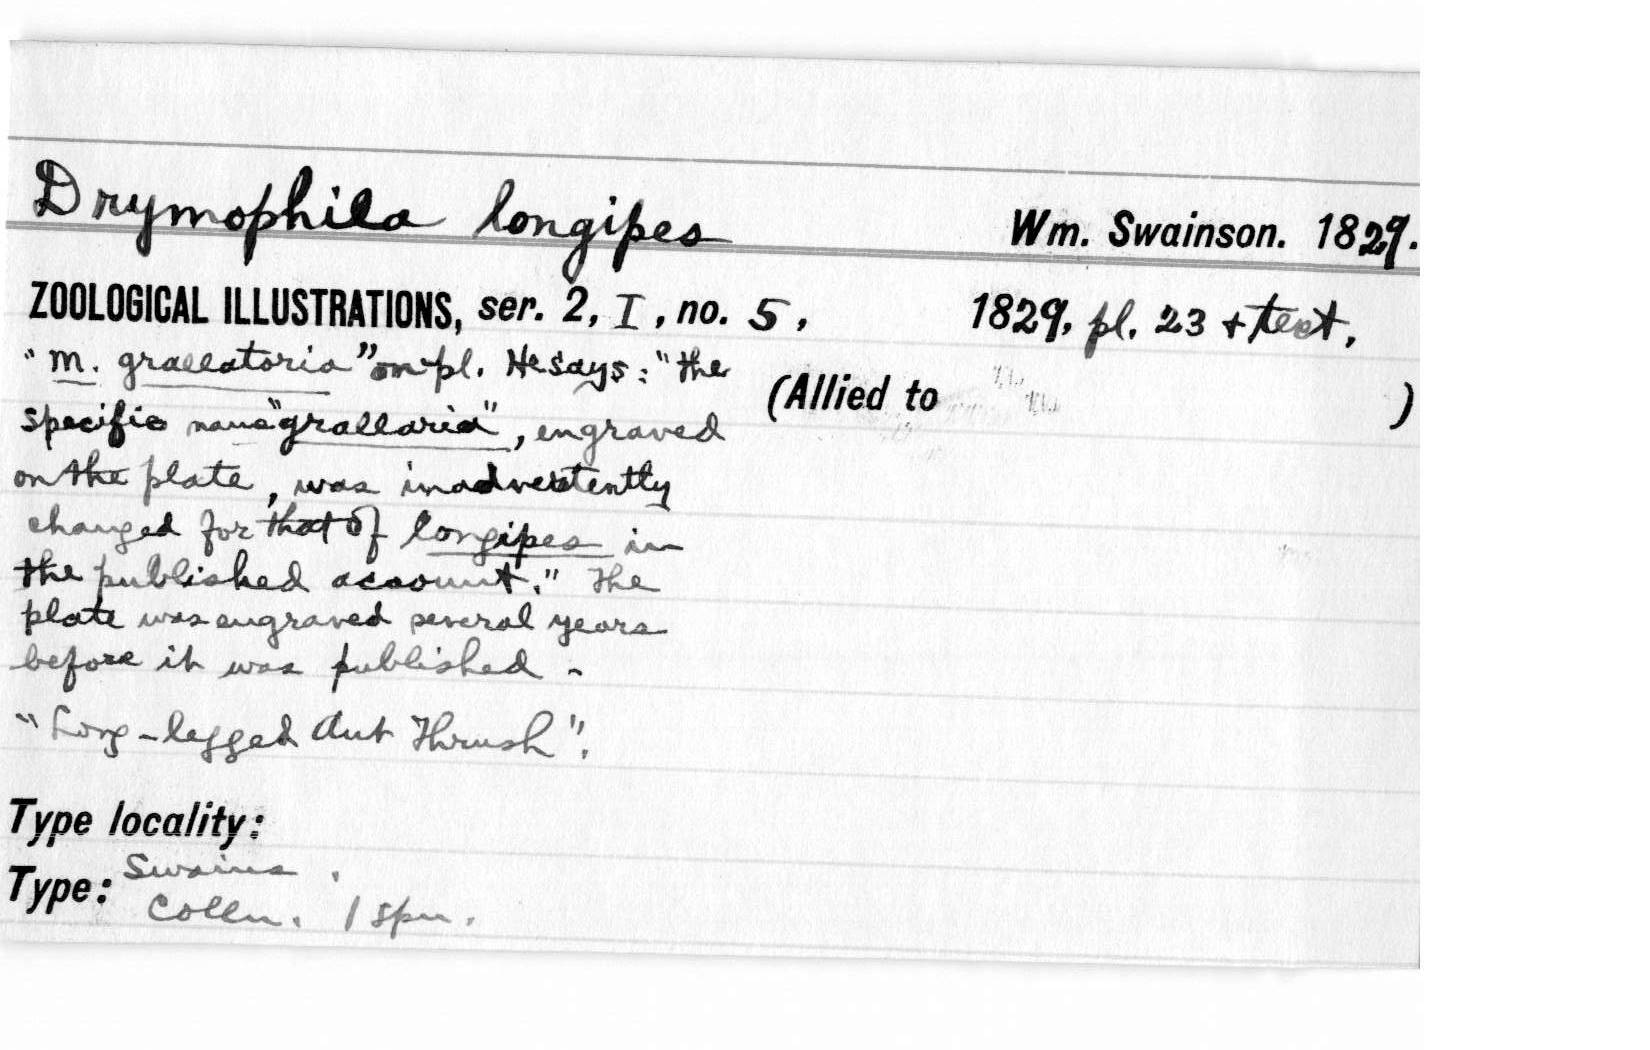 Drymophila longipes Wm. Swainson. 1829.
ZOOLOGICAL ILLUSTRATIONS, ser. 2, I, no. 5, 1829, pl. 23 + text,
"M. grallatoria" on pl. He says: "the
(Allied to )
specific name "grallaria", engraved
on the plate, was inadvertently
changed for that of longipes in
the published account." The
plate was engraved several years
before it was published -
"Long-legged Ant Thrush".
Type locality:
Type: Swains.
Colln. 1 spn.